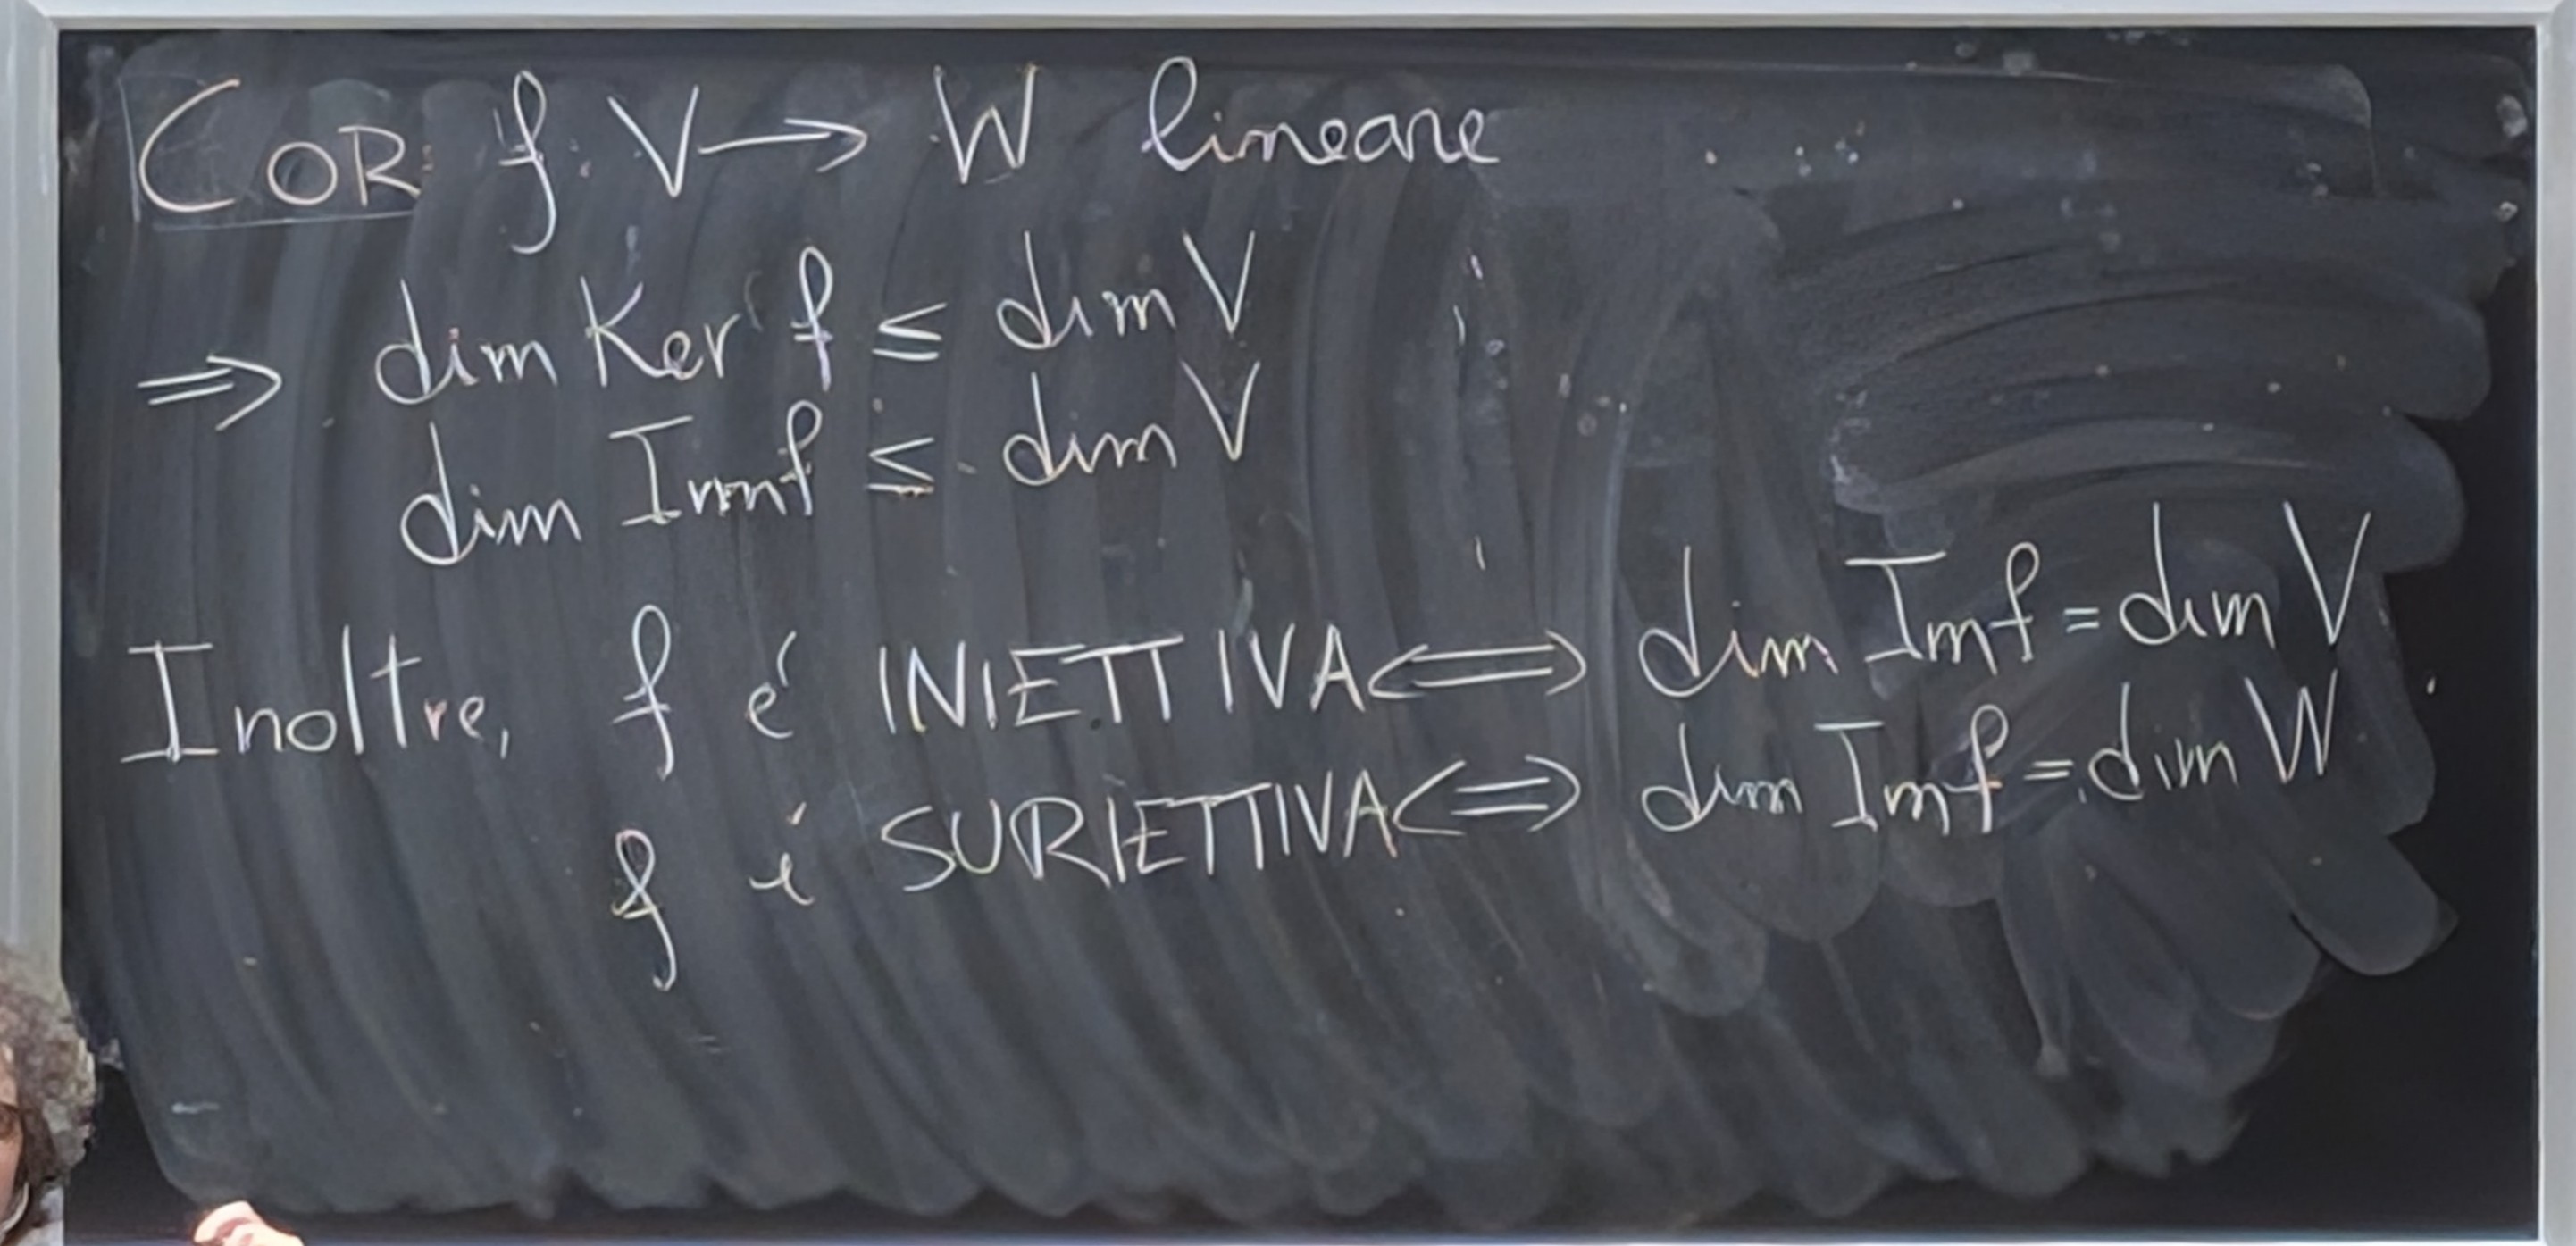 COR: f: V → W lineare
⇒ dim Ker f ≤ dim V
dim Imf ≤ dim V
Inoltre, f é INIETTIVA ⟺ dim Imf = dim V
f é SURIETTIVA ⟺ dim Imf = dim W.